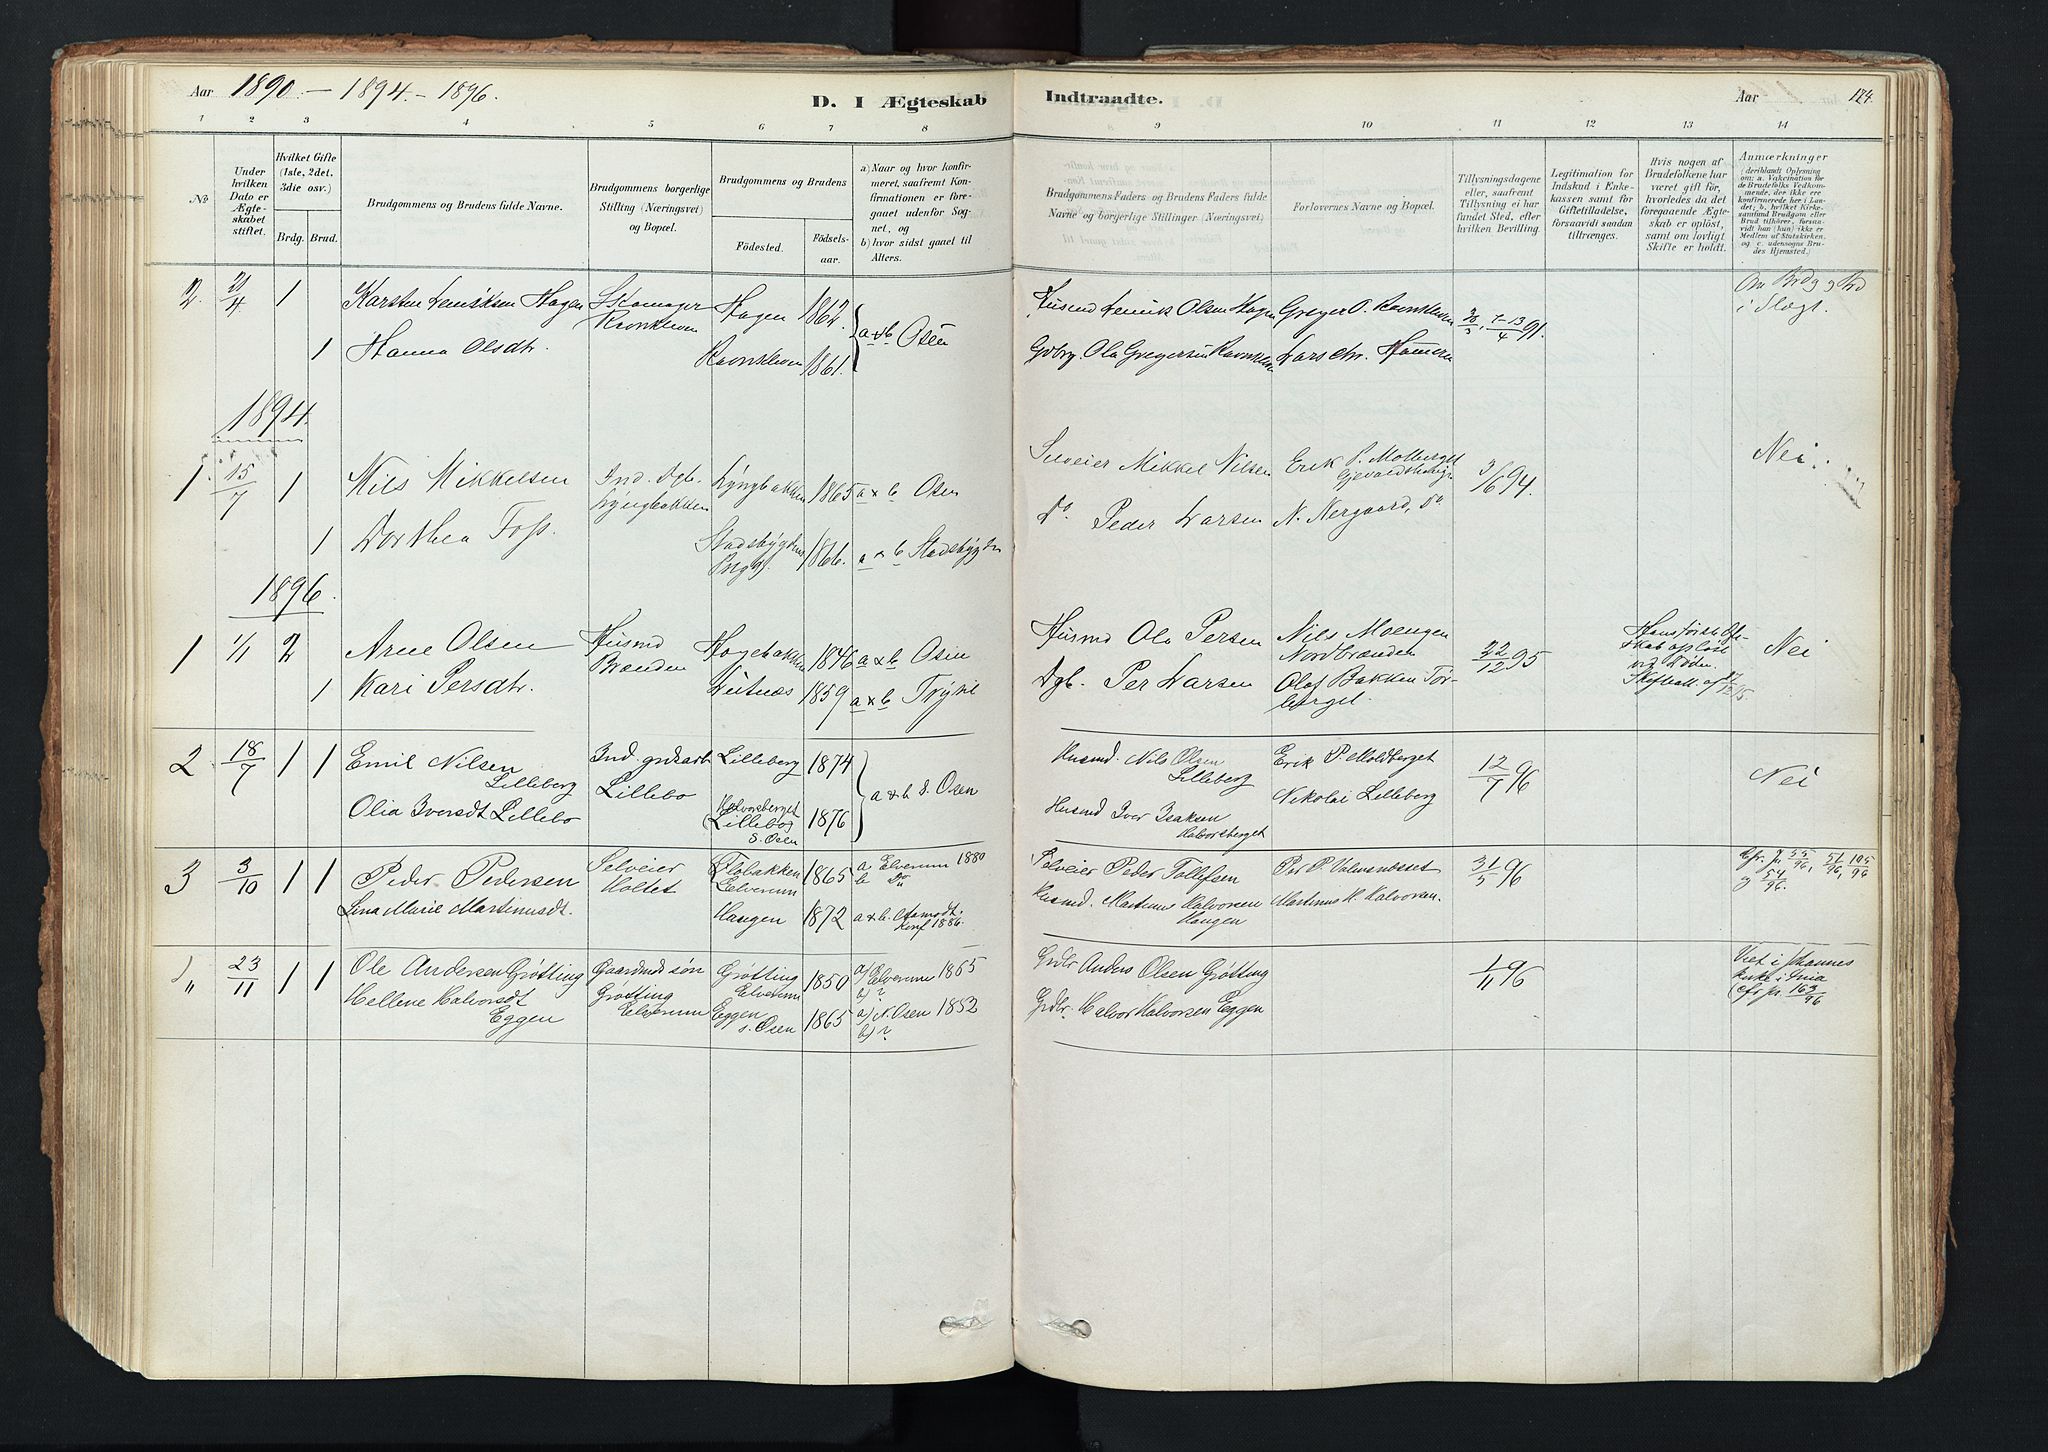 Aar 1890. — 1894. – 1896.
D. I Ægteskab Indtraadte.
Aar 124.
1 2 3 4 5 6 7 8 9 10 11 12 13 14
No
Under hvilken Dato er Ægteskabet stiftet.
Hvilket Gifte (1ste, 2det, 3die osv.)
Brdg. Brud.
Brudgommens og Brudens fulde Navne.
Brudgommens borgerlige Stilling (Næringsvei) og Bopæl.
Brudgommens og Brudens
Födested. Födselsaar.
a) Naar og hvor konfirmeret, saafremt Konfirmationen er foregaaet udenfor Sognet, og
b) hvor sidst gaaet til Alters.
Brudgommens Faders og Brudens Faders fulde Navne og borgerlige Stillinger (Næringsvei).
Forlovernes Navne og Bopæl.
Tillysningsdagene eller, saafremt Tillysning ei har fundet Sted, efter hvilken Bevilling.
Legitimation for Indskud i Enkekassen samt for Giftetilladelse, forsaavidt saadan tiltrænges.
Hvis nogen af Brudefolkene har været gift før, hvorledes da det foregaaende Ægteskab er oplöst, samt om lovligt Skifte er holdt.
Anmærkninger
(deriblandt Oplysning om: a. Vakcination for Brudefolks Vedkommende, der ikke ere konfirmerede her i Landet; b. hvilket Kirkesamfund Brudgom eller Brud tilhörer, forsaavidt han (hun) ikke er Medlem af Statskirken, og c. udensogns Brudes Hjemsted.)
2. 21/4 1 Karsten Henriksen Hagen Skomager Hagen 1862. Husmd Henrik Olsen Hagen Greger O. Ravnkleven 30/3, 7-13/4 91. Om Brdg og Brd
Ravnkleven a & b Osen i Slægt.
1 Hanna Olsdtr. Ravnkleven 1861. Gdbrg. Ola Gregersen Ravnkleven Lars Chr. Hameren
1894.
1 15/7 1 Nils Mikkelsen Ind. Dgb. Lyngbakken 1865 a & b Osen Selveier Mikkel Nilsen Erik P. Molberget 3/6 94. Nei.
Lyngbakken
1 Dorthea Foss. Stadsbygden 1866. a & b Stadsbygden Do Peder Larsen N. Nergaard, Do
Prgg.
1896.
1 1/1 2 Arne Olsen Husmd Hagebakken 1846 a & b Osen Husmd Ola Persen Nils Moengen 22/12 95 Hans første Ægteskab opløst ved Døden. Nei
Brænden Nordbrænden
1 Kari Persdtr. Lutnæs 1859 a & b Trysil Dgb. Per Larsen Olaf Bakken Tørberget.
2 18/7 1 1 Emil Nilsen Ind. grdsarb Lilleberg 1874 Husmd. Nils Olsen Erik P. Moldberget 12/7 96 Nei
Lilleberg Lillebo a & b S. Osen Lilleberg
Olia Iversdt Lillebo Halvorsberget 1876 Husmd Iver Isaksen Nikolai Lilleberg
(Lillebo) Halvorsberget
S. Osen
3 3/10 1 1 Peder Pedersen Selveier Flobakken 1865 a Elverum 1880 Selveier Peder Tollefsen Per P. Ulvmendseset 31/5 96 Cfr. jr 55/96, 51/96, 105/96
Holtet Elverum b Do og 54/96.
Lina Marie Martinusdt. Haugen 1872 a & b Osen Husmd. Martinus Halvorsen Martinus H. Halvorsen.
Konf 1886. Haugen
" 23/11 1 1 Ole Andersen Grøtting Gaardmds søn Grøtting 1850 a) Elverum 1865 Grdbr Anders Olsen Grøtting 1/11 96 Viet i Johannes
Grøtting Elverum b) ? kirke i
Hellene Halvorsdt Elverum Eggen 1865 a) N. Osen 1852 Grdbr. Halvor Halvorsen Eggen (cfr jr. 163/96
Eggen S. Osen b) ?